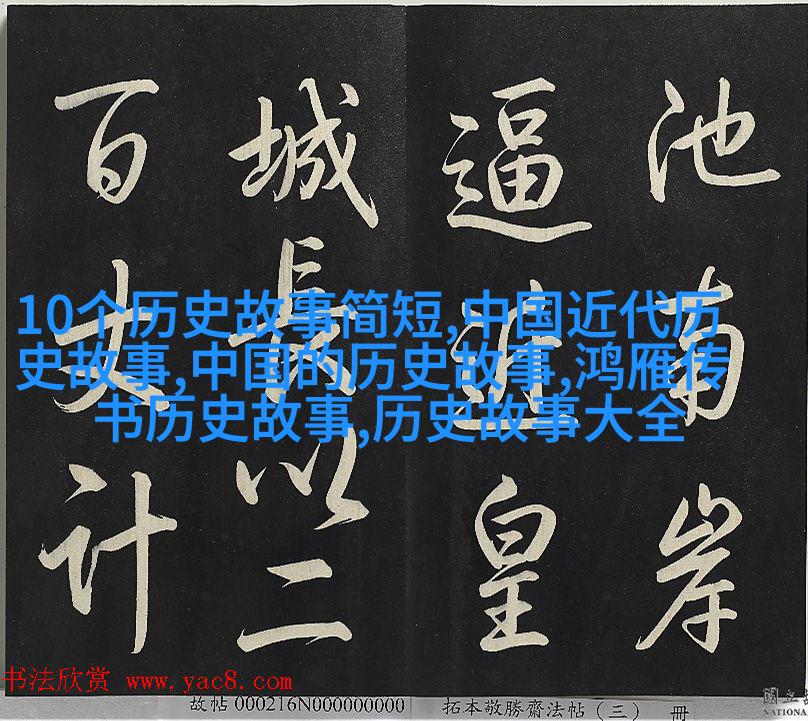 池南岸
逼近皇
城長以二
百丈計
10个历史故事简短,中国近代历
史故事,中国的历史故事,鸿雁传
书历史故事,历史故事大全
书法欣赏 www.yac8.com
故帖 000216N000000000
拓本敬勝齋法帖（三） 冊
國立
NATIONA